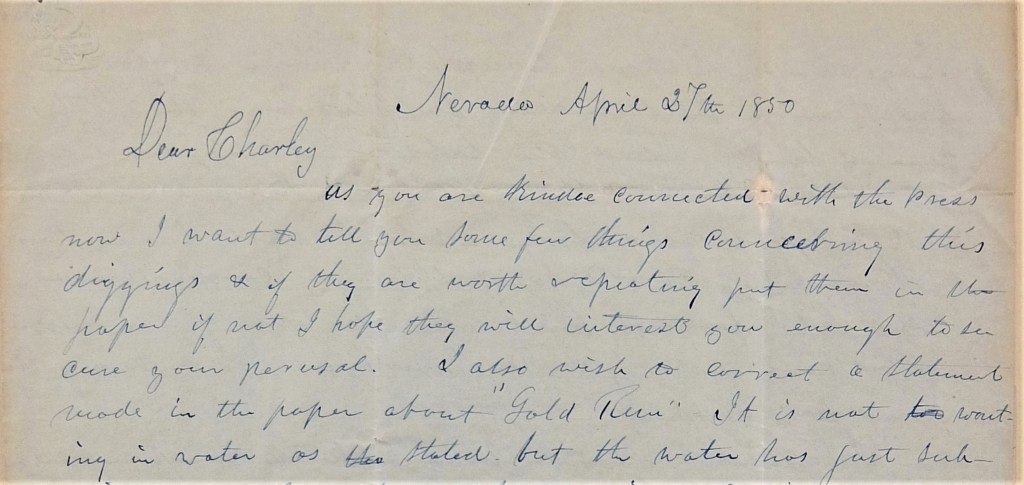 Nevada April 27th 1850
Dear Charley
as you are kindoe connected with the press
now I want to tell you some few things concerning this
diggings & if they are worth repeating put them in the
paper if not I hope they will interest you enough to se
cure your perusal. I also wish to correct a statement
made in the paper about "Gold Run" It is not too want-
ing in water as the stated. but the water has just sub-